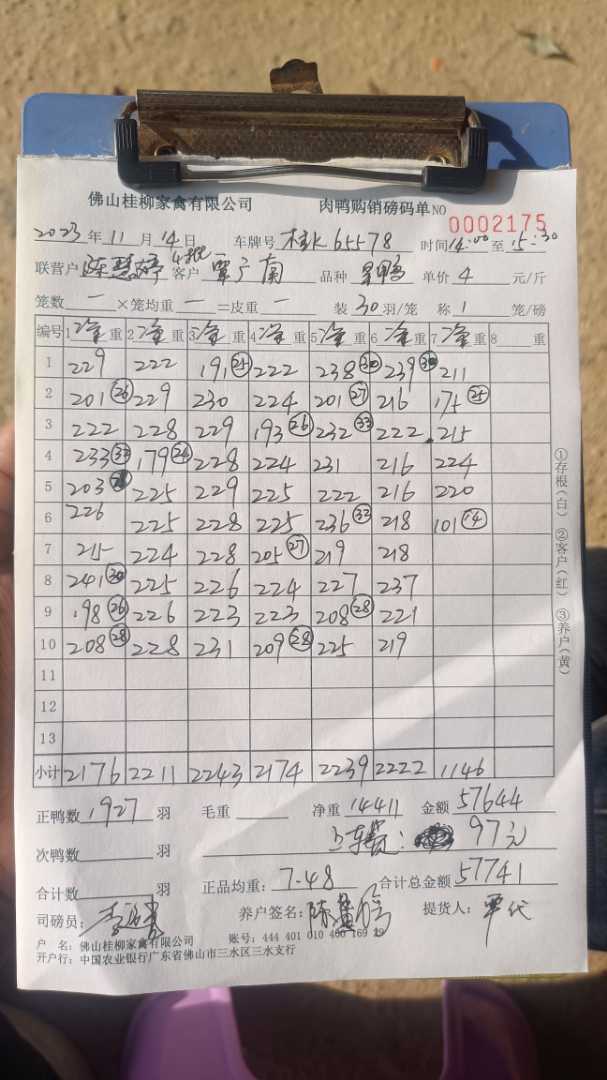 佛山桂柳家禽有限公司 肉鸭购销磅码单NO 0002175
2023年11月14日 车牌号 桂K65578 时间14:00至15:30
联营户 陈慧婷 客户 覃广南 品种 鸭 单价 4 元/斤
笼数 一 ×笼均重 一 =皮重 一 装30羽/笼 称 1 笼/磅
编号 1净重 2净重 3净重 4净重 5净重 6净重 7净重 8 重
1 229 222 191(25) 222 238 239 211
2 201(26) 229 230 224 201(27) 216 175(25)
3 222 228 229 193(26) 232(33) 222 215
4 233 179 228 224 231 216 224
5 203 225 229 225 222 216 220
6 226 225 228 225 236 218 101(14)
7 215 224 228 205(27) 219 218
8 241(30) 225 226 224 227 237
9 198(26) 226 223 223 208(28) 221
10 208(28) 228 231 209(28) 225 219
11
12
13
小计 2176 2211 2243 2174 2239 2222 1146
正鸭数 1927 羽 毛重 净重 14411 金额 57644
上车费: 97元
次鸭数 羽
合计数 羽 正品均重: 7.48 合计总金额 57741
司磅员: 养户签名: 提货人: 覃代
户 名: 佛山桂柳家禽有限公司 账号: 444 401 010 400 169
开户行: 中国农业银行广东省佛山市三水区三水支行
①存根(白) ②客户(红) ③养户(黄)